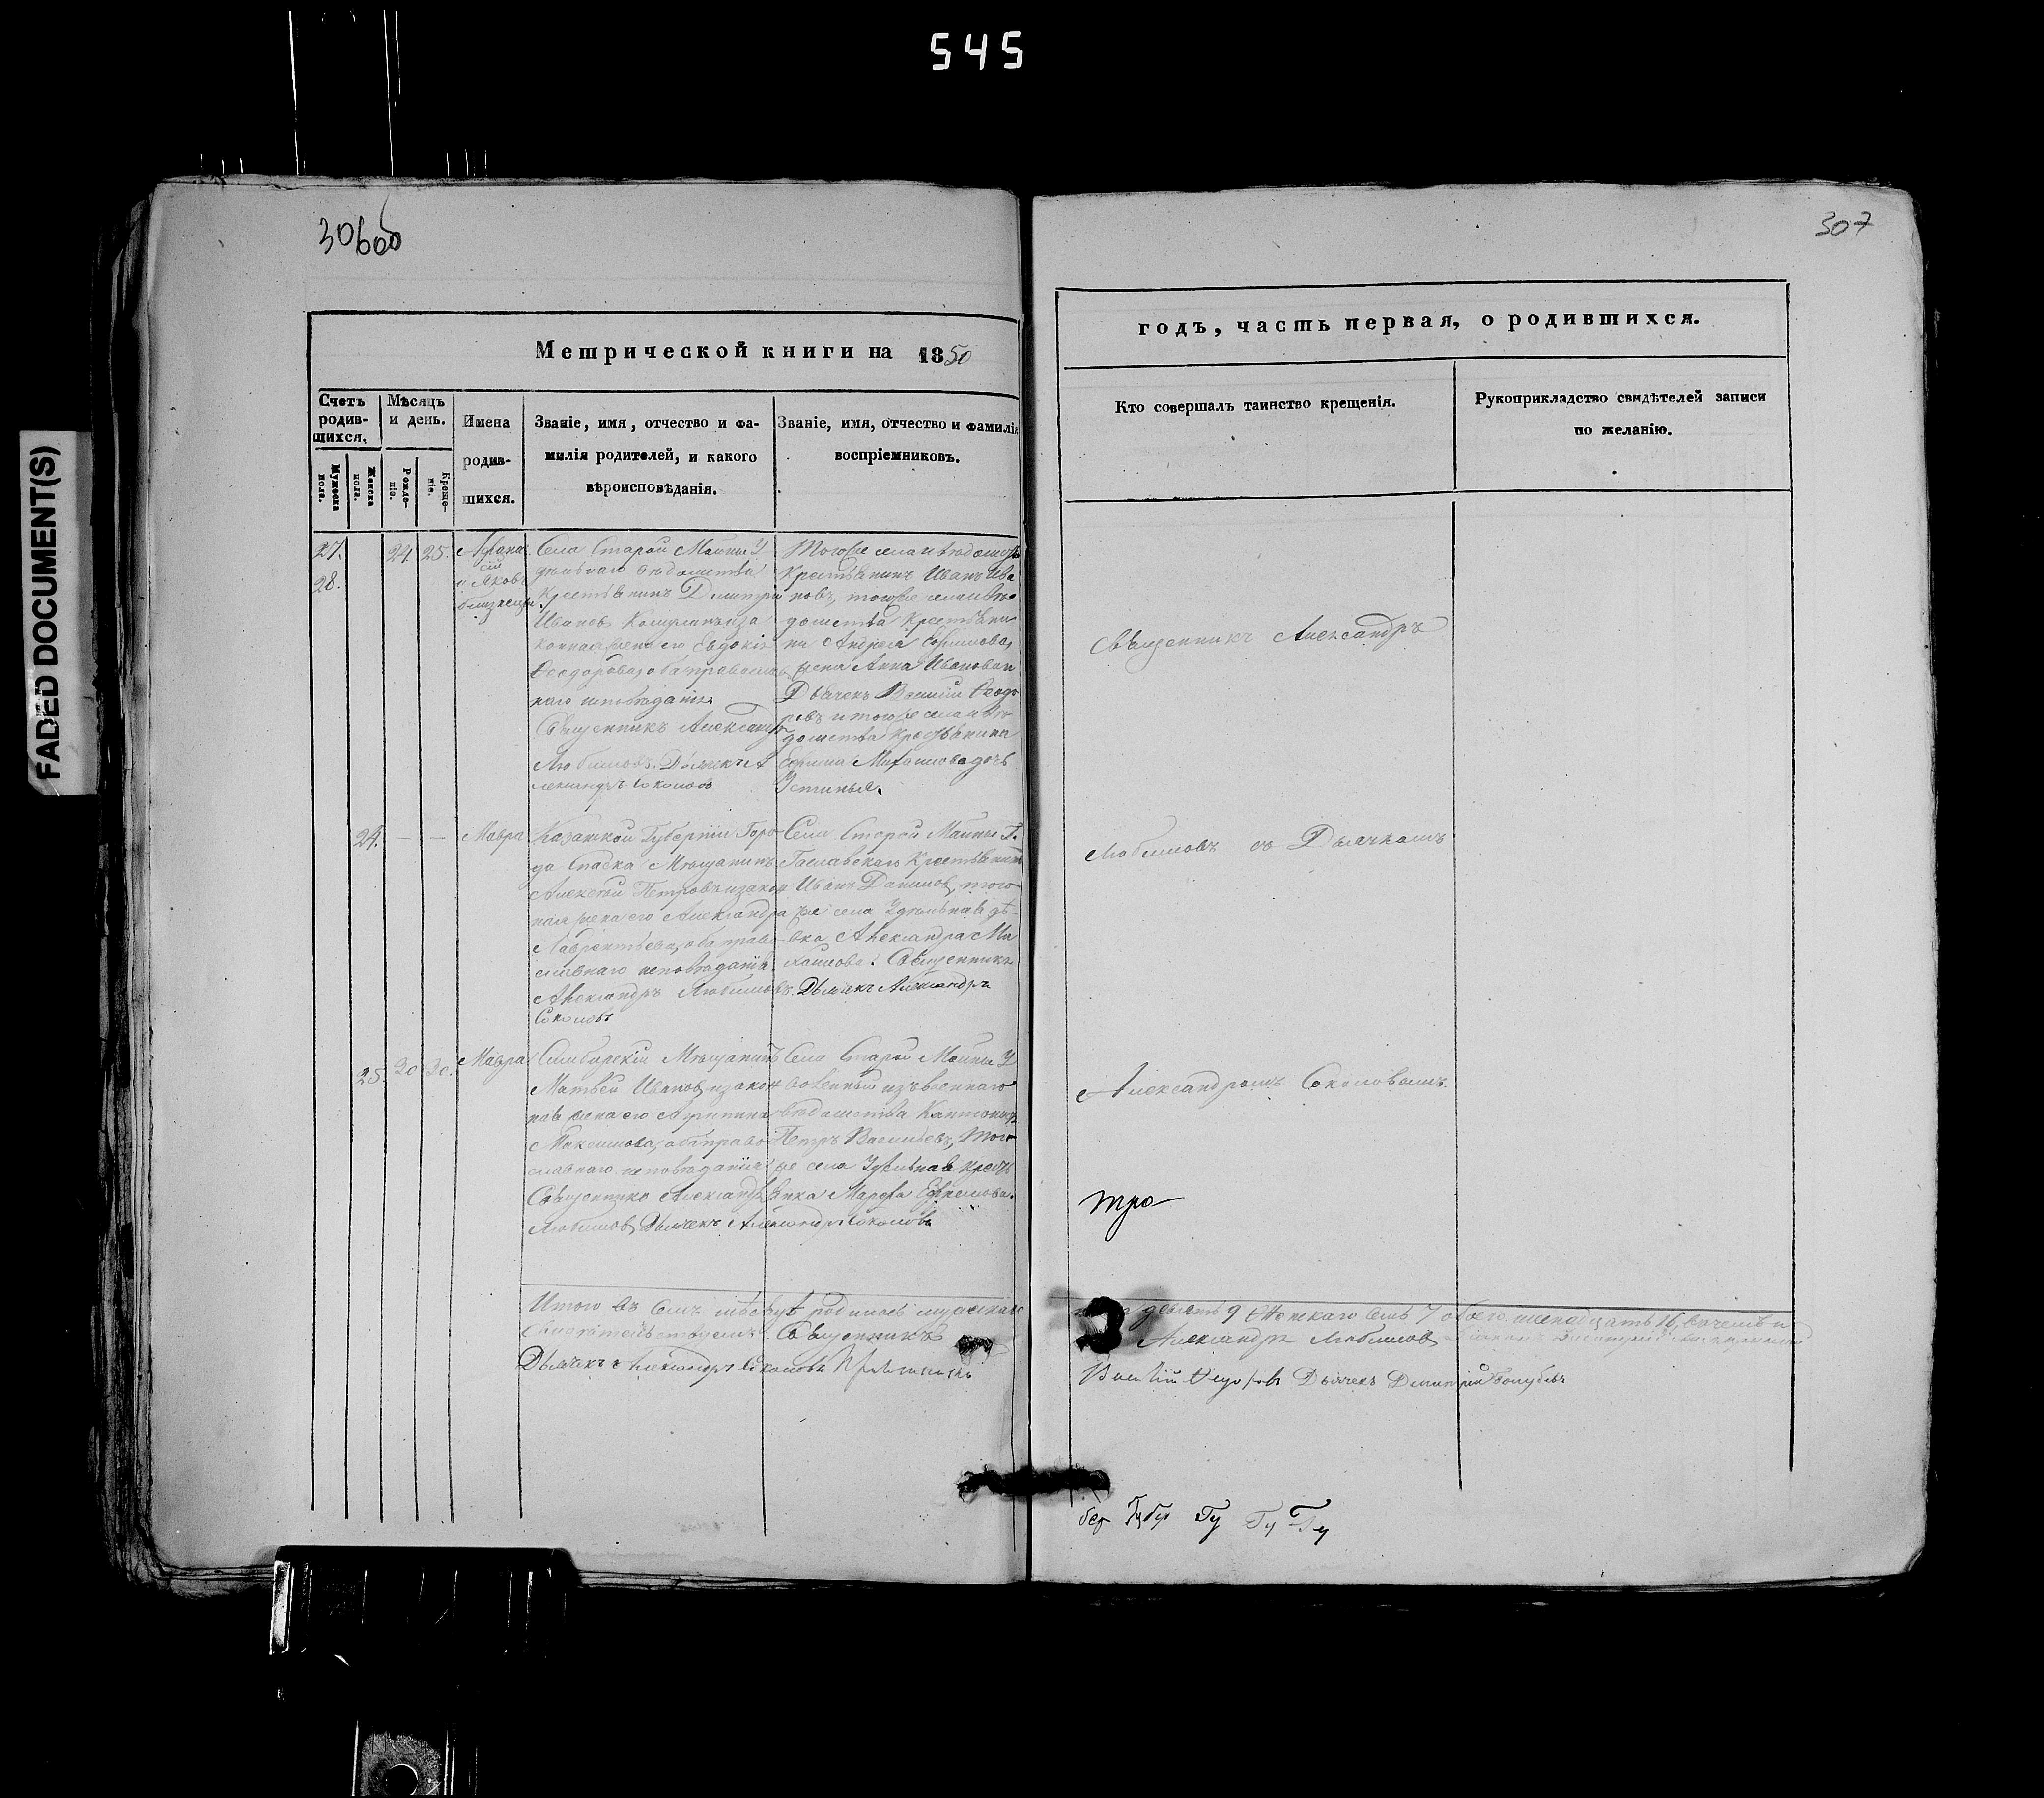 545
FADED DOCUMENT(S)
306об
307
Метрической книги на 1850
годъ, часть первая, о родившихся.
Счетъ родив-шихся.
Мѣсяцъ и день.
Имена родив-шихся.
Званіе, имя, отчество и фа-
милія родителей, и какого
вѣроисповѣданія.
Званіе, имя, отчество и фамилія
воспріемниковъ.
Кто совершалъ таинство крещенія.
Рукоприкладство свидѣтелей записи
по желанію.
Мужеска пола.
Женска пола.
Рожде-ніе.
Креще-ніе.
27.
28.
24 25.
Афана
сій
и Яковъ
близнецы
Села Старой Майны У
дѣльнаго вѣдомства
Крестьянинъ Димитрій
Ивановъ
конная жена его Евдокія
Ѳеодорова, оба православ
наго исповѣданія.
Священникъ Александръ
Любимовъ. Дьячекъ А
лександръ Соколовъ
Тогоже села и вѣдомства
Крестьянинъ Иванъ Ива
новъ, тогоже села и вѣ
домства Крестьяни
на Андрея
жена Анна Иванова и
Дьячекъ Василій Ѳеодо
ровъ и тогоже села и вѣ
домства Крестьянина
Михайлова дочь
Устинья.
Священникъ Александръ
24. — — Мавра
Казанской Губерніи Горо
да Спаска Мѣщанинъ
Алексѣй Петровъ и закон
ная жена его Александра
Лаврентьева, оба право
славнаго исповѣданія.
Александръ Любимовъ. Дьячекъ Александръ
Соколовъ
Села Старой Майны Г.
Крестьянинъ
Иванъ Даниловъ, того
же села Удѣльная дѣ-
вка Александра Ми
хайлова. Священникъ
Любимовъ съ Дьячкомъ
25. 30 30. Мавра
Симбирскій Мѣщанинъ
Матвей Ивановъ, и закон
ная жена его Агрипина
Максимова, оба право
славнаго исповѣданія
Священникъ Александръ
Любимовъ, Дьячекъ Александръ Соколовъ
Села Старой Майны У
военнаго
вѣдомства Кантонистъ
Петръ Васильевъ, Того
же села Удѣльная Крестья
нка Марфа Ефремова.
Александромъ Соколовымъ.
тро
Итого въ семъ мѣсяцѣ родилось мужеска
девять 9 Женскаго Семь 7 обоего шестнадцать 16, въ чемъ и
свидѣтельствуемъ: Священникъ
Александръ Любимовъ
Дьячекъ Александръ Соколовъ
Дьячекъ Димитрій
Гу Гу Гу